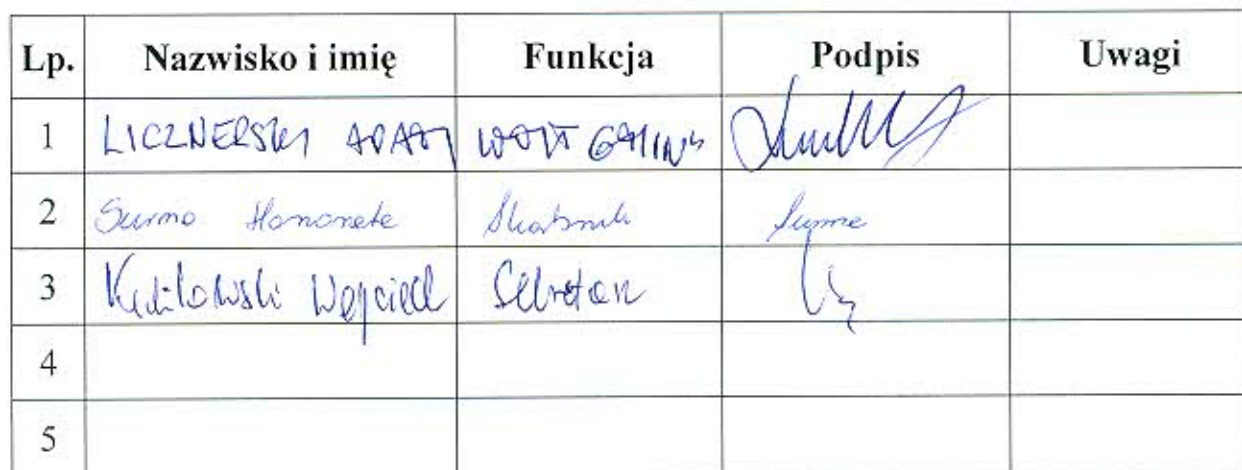 Lp. Nazwisko i imię Funkcja Podpis Uwagi
1 LICZNERSKI ADAM WÓJT GMINY
2 Surma Skarbnik Surma
3 Wojciech Sekretarz
4
5